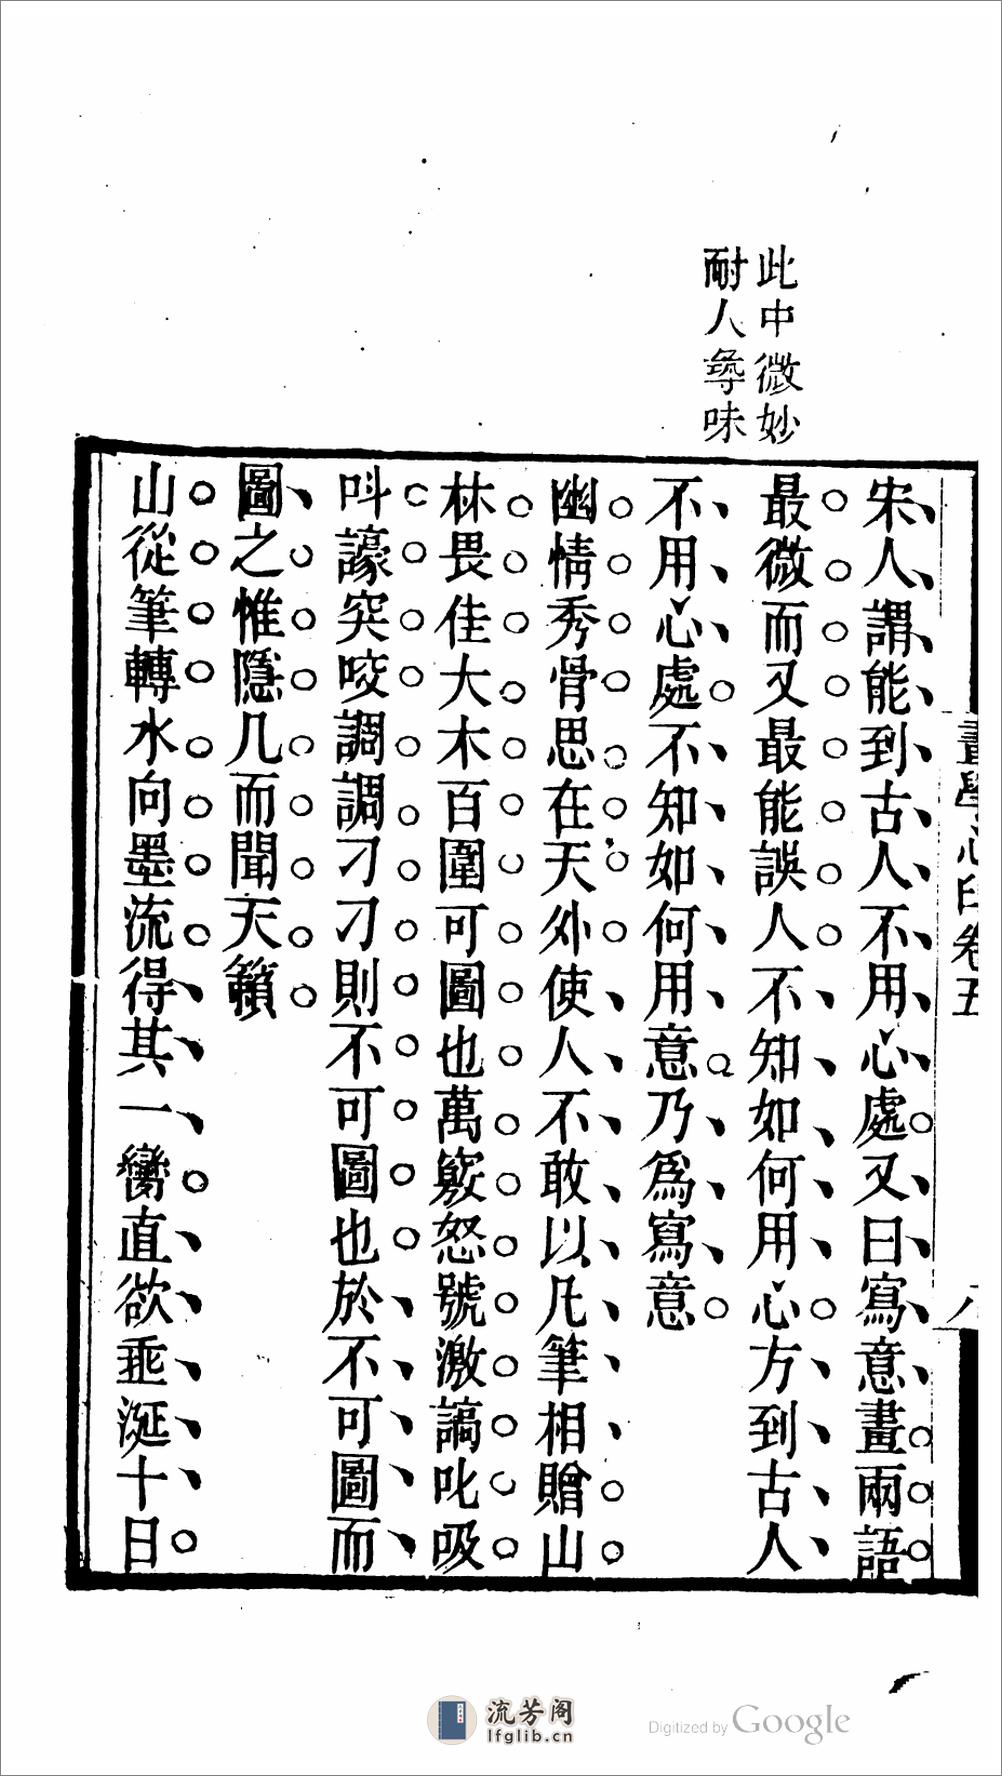 此中微妙
耐人尋味
畫學心印卷五
八
宋人謂能到古人不用心處又曰寫意畫兩語
最微而又最能誤人不知如何用心方到古人
不用心處不知如何用意乃為寫意
幽情秀骨思在天外使人不敢以凡筆相贈山
林畏佳大木百圍可圖也萬竅怒號激謞叱吸
叫譹突咬調調刁刁則不可圖也於不可圖而
圖之惟隱几而聞天籟
山從筆轉水向墨流得其一臠直欲垂涎十日
流芳阁
lfglib.cn
Digitized by Google